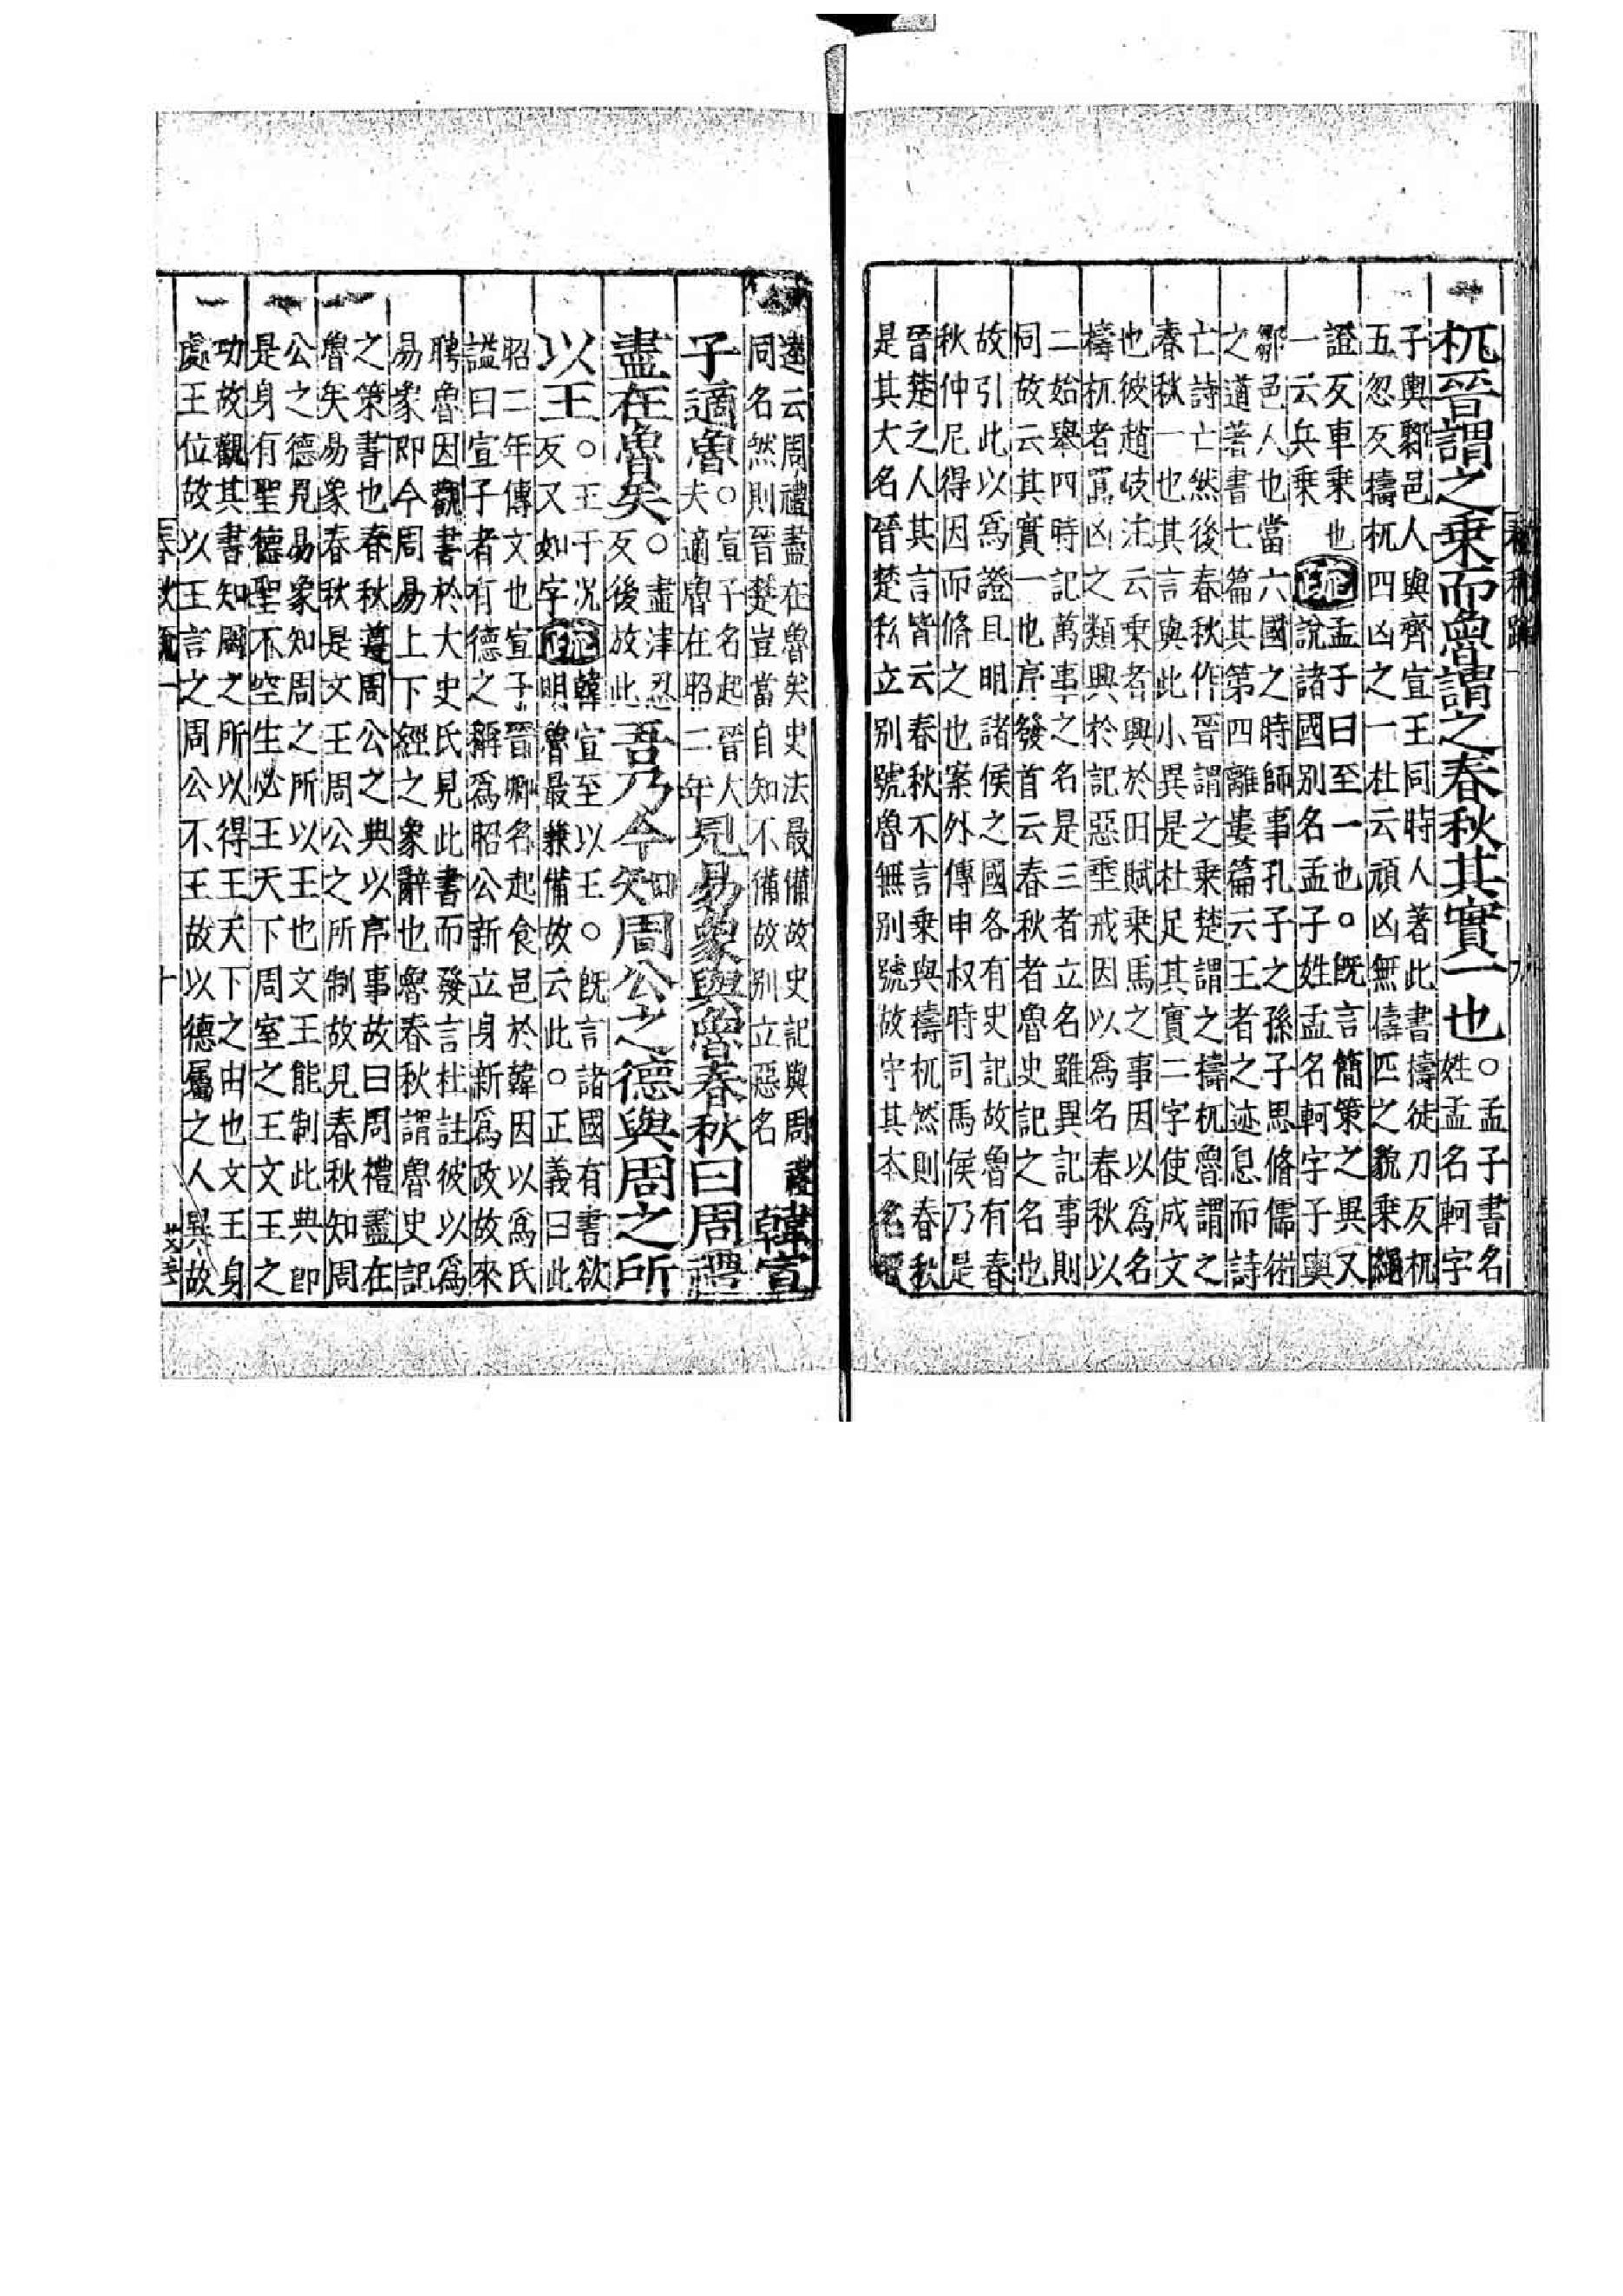 杌晉謂之乗而魯謂之春秋其實一也
○孟子書名
姓孟名軻字
子輿鄒邑人與齊宣王同時人著此書檮徒刀反杌
五忽反檮杌四凶之一杜云頑凶無儔匹之貌乗繩
證反車乗也
一云兵乗
疏
孟子曰至一也○旣言簡策之異又
說諸國别名孟子姓孟名軻字子輿
鄒邑人也當六國之時師事孔子之孫子思脩儒術
之道著書七篇其第四離婁篇云王者之迹息而詩
亡詩亡然後春秋作晉謂之乗楚謂之檮杌魯謂之
春秋一也其言與此小異是杜足其實二字使成文
也彼趙岐注云乗者興於田賦乗馬之事因以爲名
檮杌者嚚凶之類興於記惡垂戒因以爲名春秋以
二始舉四時記萬事之名是三者立名雖異記事則
同故云其實一也序發首云春秋者魯史記之名也
故引此以爲證且明諸侯之國各有史記故魯有春
秋仲尼得因而脩之也案外傳申叔時司馬侯乃是
晉楚之人其言皆云春秋不言乗與檮杌然則春秋
是其大名晉楚私立别號魯無别號故守其本名賈
逵云周禮盡在魯矣史法最備故史記與周禮
同名然則晉楚豈當自知不備故别立惡名
韓宣
子適魯
○宣子名起晉大
夫適魯在昭二年
見易象與魯春秋曰周禮
盡在魯矣
○盡津忍
反後放此
吾乃今知周公之德與周之所
以王
○王于況
反又如字
疏
韓宣至以王○旣言諸國有書欲
明魯最兼備故云此○正義曰此
昭二年傳文也宣子晉卿名起食邑於韓因以爲氏
謚曰宣子者有德之稱爲昭公新立身新爲政故來
聘魯因觀書於大史氏見此書而發言杜註彼以爲
易象即今周易上下經之象辭也魯春秋謂魯史記
之策書也春秋遵周公之典以序事故曰周禮盡在
魯矣易象春秋是文王周公之所制故見春秋知周
公之德見易象知周之所以王也文王能制此典即
是身有聖德聖不空生必王天下周室之王文王之
功故觀其書知周之所以得王天下之由也文王身
處王位故以王言之周公不王故以德屬之人異故
春秋疏一
十